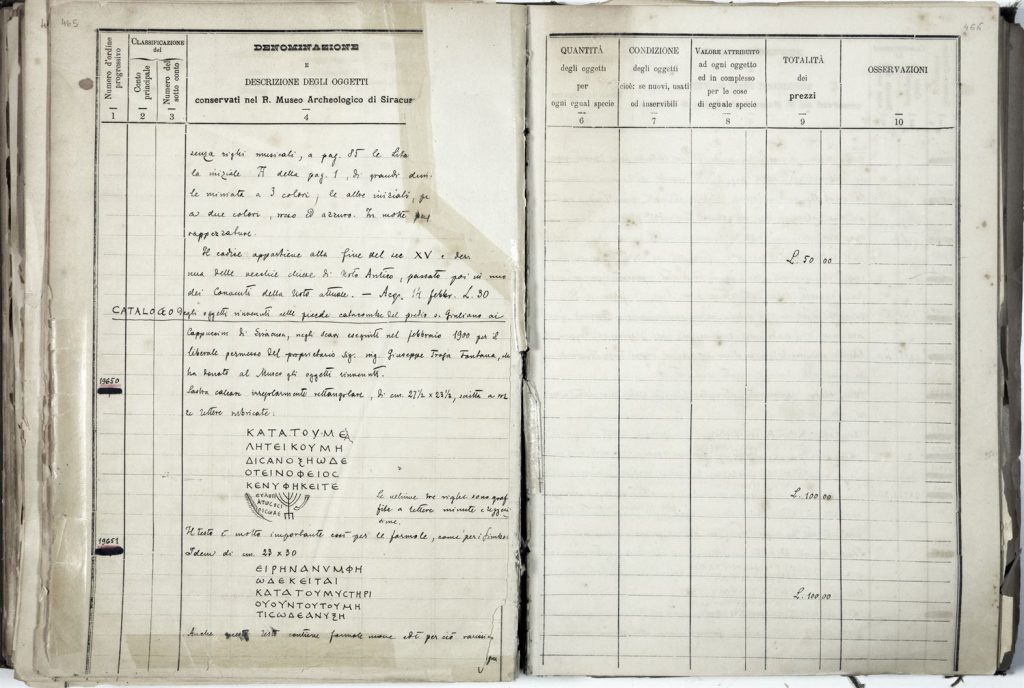 465
Numero d'ordine progressivo
CLASSIFICAZIONE
del
Conto principale
Numero del sotto conto
DENOMINAZIONE
E
DESCRIZIONE DEGLI OGGETTI
conservati nel R. Museo Archeologico di Siracus
1 2 3 4
senza righi musicali, a pag. 85 le
la iniziale della pag. 1, di grandi
le miniata a 3 colori; le altre iniziali,
a due colori, rosso ed azzurro. In molte pag
rappezzature.
Il codice appartiene alla fine del sec XV e
delle vecchie chiese di Noto Antico, passato poi in
dei Conventi della Noto attuale. — Acq. 14 febbr. L. 30
CATALOGO degli oggetti rinvenuti nelle piccole catacombe del predio S. Giuliano ai
Cappuccini di Siracusa, negli scavi eseguiti nel febbraio 1900 per il
liberale permesso del proprietario sig. Giuseppe Troja Fontana, che
ha donato al Museo gli oggetti rinvenuti.
19650
Lastra calcare irregolarmente rettangolare, di cm. 27½ x 23½, scritta a
lettere rubricate:
ΚΑΤΑΤΟΥΜΕ
ΛΗΤΕΙΚΟΥΜΗ
ΔΙϹΑΝΟΞΗѠΔΕ
ΟΤΕΙΝΟΦΕΙΟϹ
ΚΕΝΥΦΗΚΕΙΤΕ
Le ultime tre righe sono graf
fite a lettere minute e leggeris
sime.
Il testo è molto importante così per le formole, come per i simboli
19651
Idem di cm. 23 x 30
ΕΙΡΗΝΑΝΥΜΦΗ
ѠΔΕΚΕΙΤΑΙ
ΚΑΤΑΤΟΥΜΥϹΤΗΡΙ
ΟΥΟΥΝΤΟΥΤΟΥΜΗ
ΤΙϹѠΔΕΑΝΥΞΗ
Anche questo testo contiene formole nuove ed è per ciò
466
QUANTITÀ
degli oggetti
per
ogni egual specie
6
CONDIZIONE
degli oggetti
cioè: se nuovi, usati
od inservibili
7
VALORE ATTRIBUITO
ad ogni oggetto
ed in complesso
per le cose
di eguale specie
8
TOTALITÀ
dei
prezzi
9
OSSERVAZIONI
10
L. 50 00
L. 100 00
L. 100 00